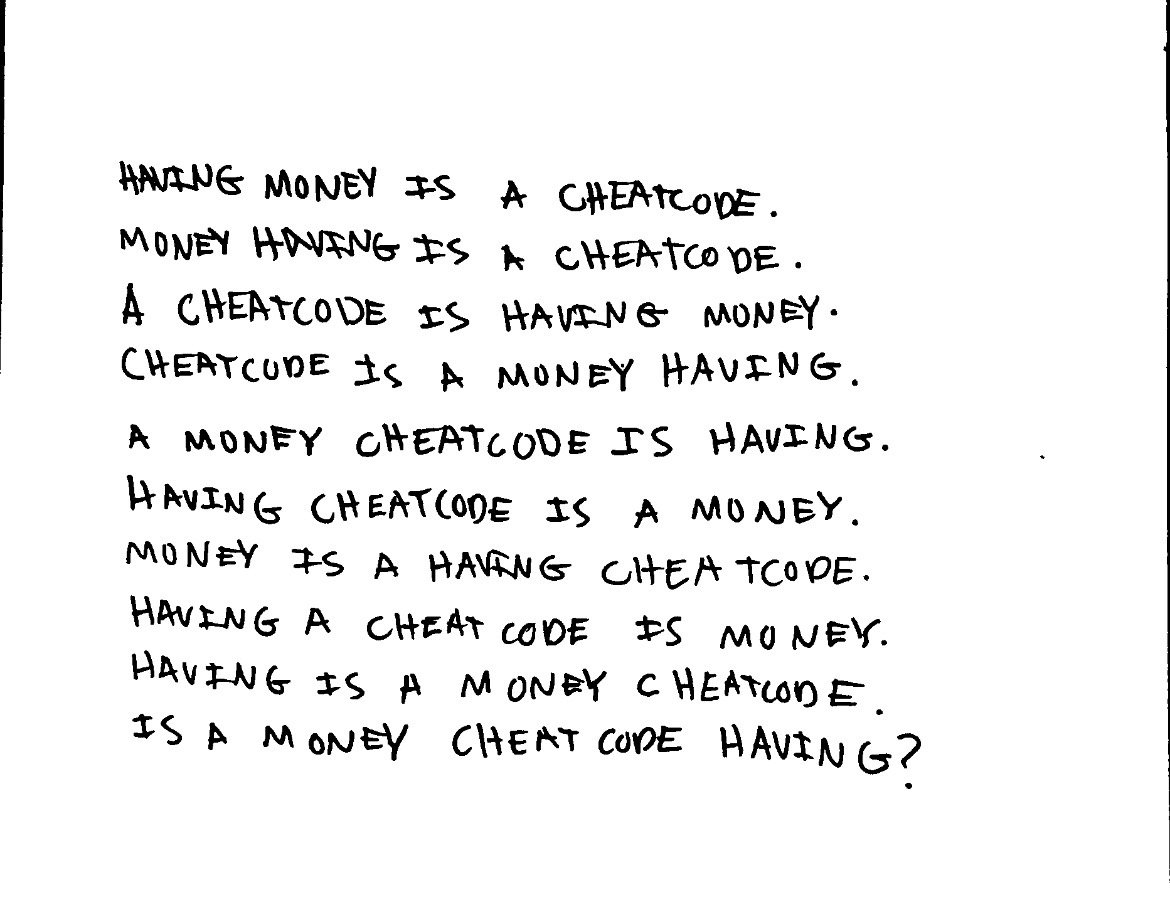 HAVING MONEY IS A CHEATCODE.
MONEY HAVING IS A CHEATCODE.
A CHEATCODE IS HAVING MONEY.
CHEATCODE IS A MONEY HAVING.
A MONEY CHEATCODE IS HAVING.
HAVING CHEATCODE IS A MONEY.
MONEY IS A HAVING CHEATCODE.
HAVING A CHEATCODE IS MONEY.
HAVING IS A MONEY CHEATCODE.
IS A MONEY CHEATCODE HAVING?